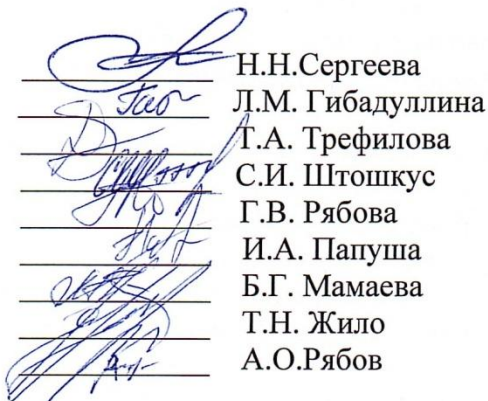 Н.Н.Сергеева
Л.М. Гибадуллина
Т.А. Трефилова
С.И. Штошкус
Г.В. Рябова
И.А. Папуша
Б.Г. Мамаева
Т.Н. Жило
А.О.Рябов